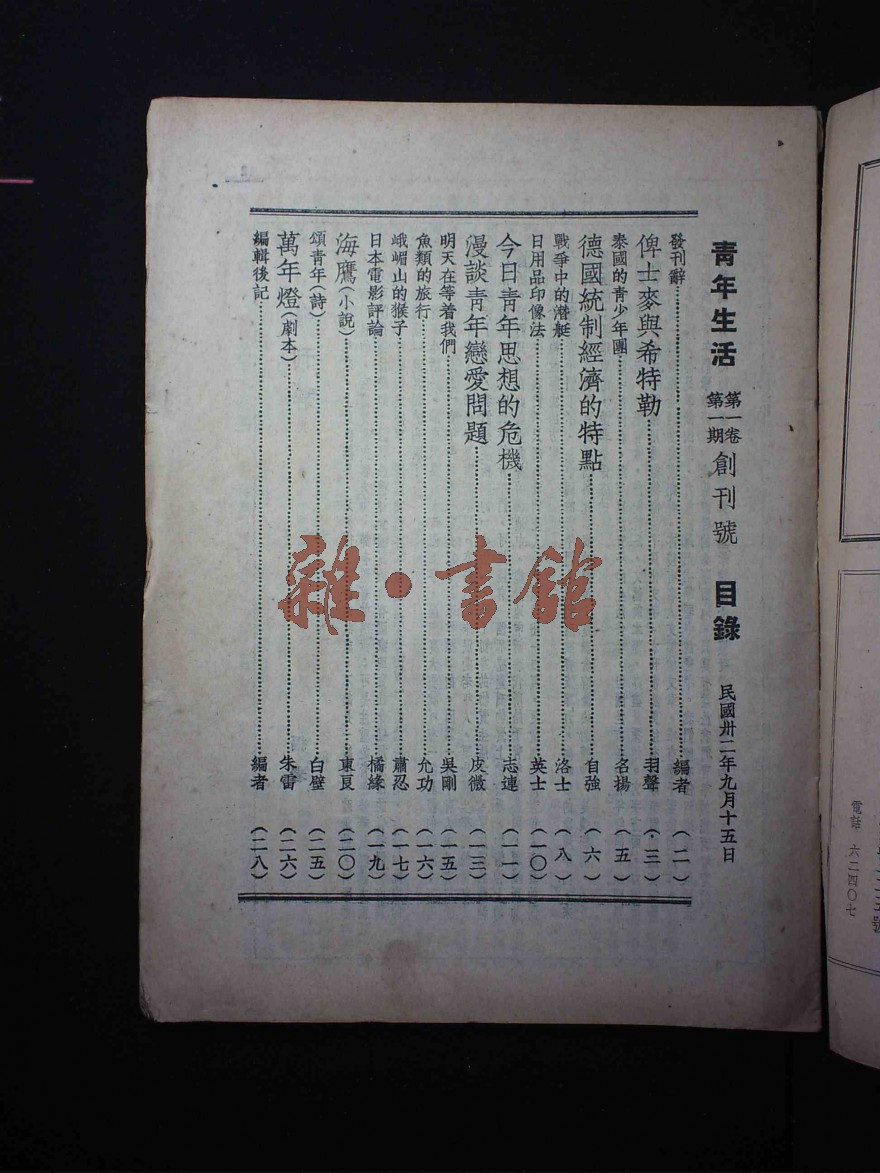 青年生活 第一卷第一期 創刊號 目錄 民國卅二年九月十五日
發刊辭……編者（二）
俾士麥與希特勒……羽聲（三）
泰國的青少年團……名揚（五）
德國統制經濟的特點……自強（六）
戰爭中的潛艇……洛士（八）
日用品印像法……英士（一〇）
今日青年思想的危機……志連（一一）
漫談青年戀愛問題……皮微（一三）
明天在等着我們……吳剛（一五）
魚類的旅行……允功（一六）
峨嵋山的猴子……肅忍（一七）
日本電影評論……橘緣（一九）
海鷹（小說）……東艮（二〇）
頌青年（詩）……白壁（二五）
萬年燈（劇本）……朱雷（二六）
編輯後記……編者（二八）
雜·書館
電話 六二四〇七